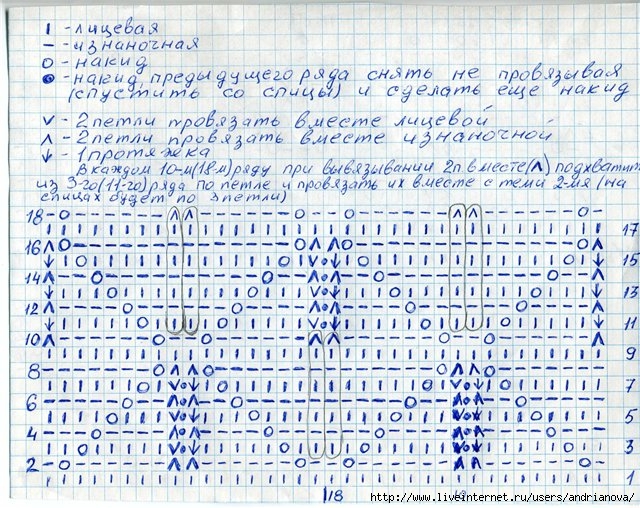 I - лицевая
— - изнаночная
O - накид
- накид предыдущего ряда снять не провязывая
(спустить со спицы) и сделать еще накид
V - 2 петли провязать вместе лицевой
Λ - 2 петли провязать вместе изнаночной
↓ - 1 протяжка
В каждом 10-м (18м) ряду при вывязывании 2п вместе (Λ) подхватить
из 3-го (11-го) ряда по петле и провязать их вместе с теми 2-мя (на
спицах будет по 3 петли)
18
17
16
15
14
13
12
11
10
9
8
7
6
5
4
3
2
1
18
http://www.liveinternet.ru/users/andrianova/